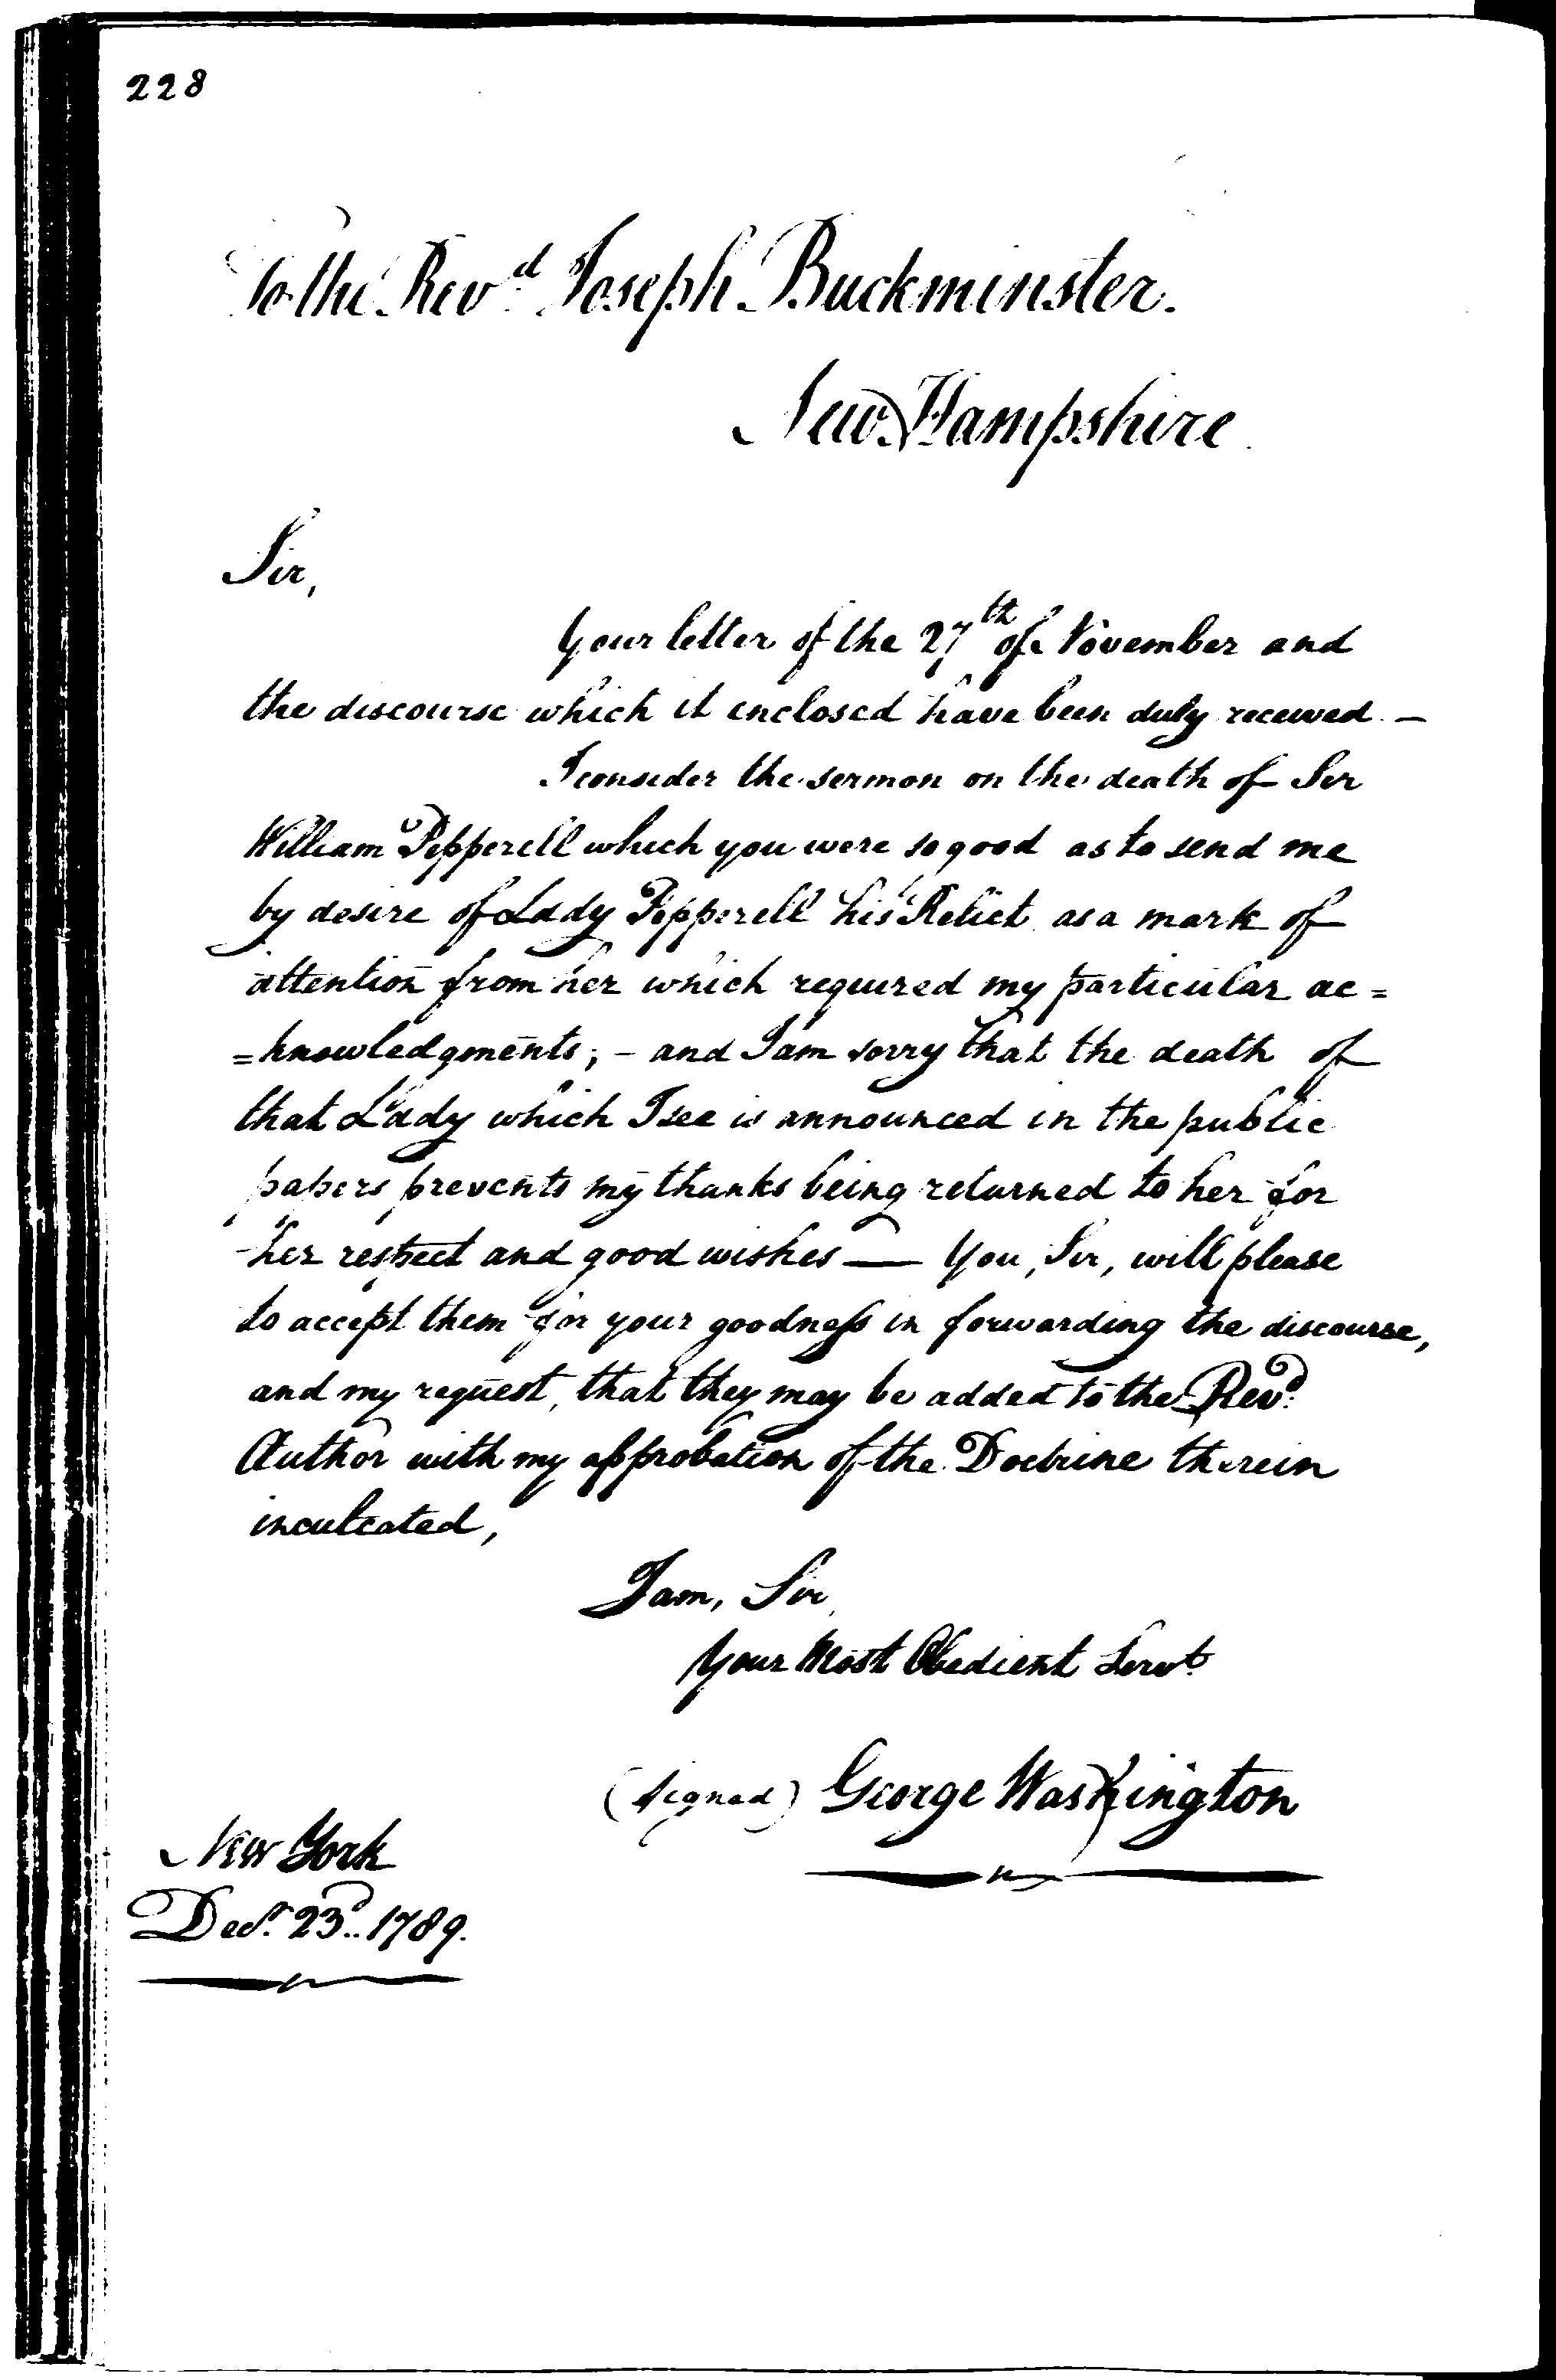 228
To the Revd. Joseph Buckminster.
New Hampshire
Sir,
Your letter of the 27th of November and
the discourse which it enclosed have been duly received. —
I consider the sermon on the death of Sir
William Pepperell which you were so good as to send me
by desire of Lady Pepperell his Relict as a mark of
attention from her which required my particular ac=
=knowledgments; – and I am sorry that the death of
that Lady which I see is announced in the public
papers prevents my thanks being returned to her for
her respect and good wishes — You, Sir, will please
to accept them for your goodness in forwarding the discourse,
and my request, that they may be added to the Revd.
Author with my approbation of the Doctrine therein
inculcated,
I am, Sir,
Your Most Obedient Servt.
(signed) George Washington
New York
Decr. 23d. 1789.